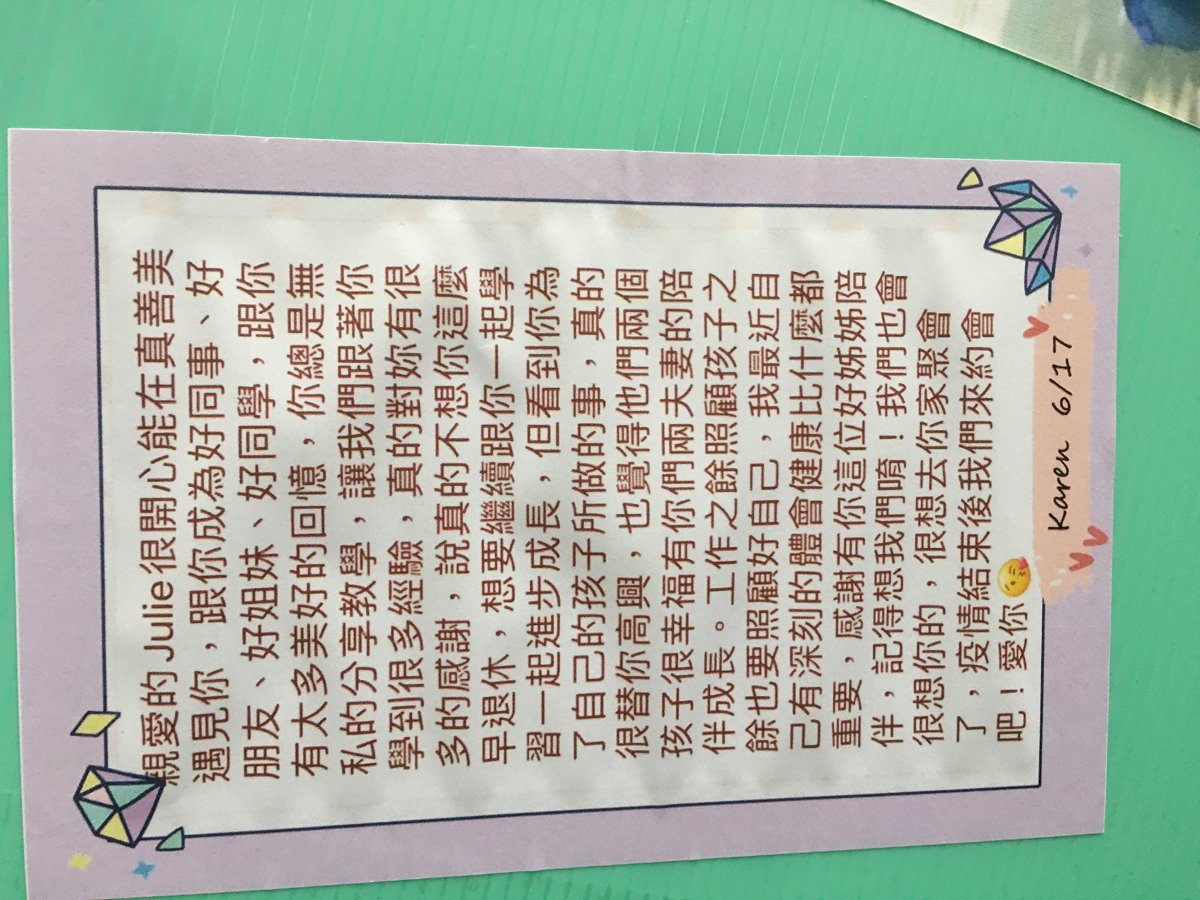 親愛的 Julie 很開心能在真善美
遇見你，跟你成為好同事、好
朋友、好姐妹、好同學，跟你
有太多美好的回憶，你總是無
私的分享教學，讓我們跟著你
學到很多經驗，真的對妳有很
多的感謝，說真的不想你這麼
早退休，想要繼續跟你一起學
習一起進步成長，但看到你為
了自己的孩子所做的事，真的
很替你高興，也覺得他們兩個
孩子很幸福有你們兩夫妻的陪
伴成長。工作之餘照顧孩子之
餘也要照顧好自己，我最近自
己有深刻的體會健康比什麼都
重要，感謝有你這位好姊姊陪
伴，記得想我們唷！我們也會
很想你的，很想去你家聚會
了，疫情結束後我們來約會
吧！愛你😘
Karen 6/17